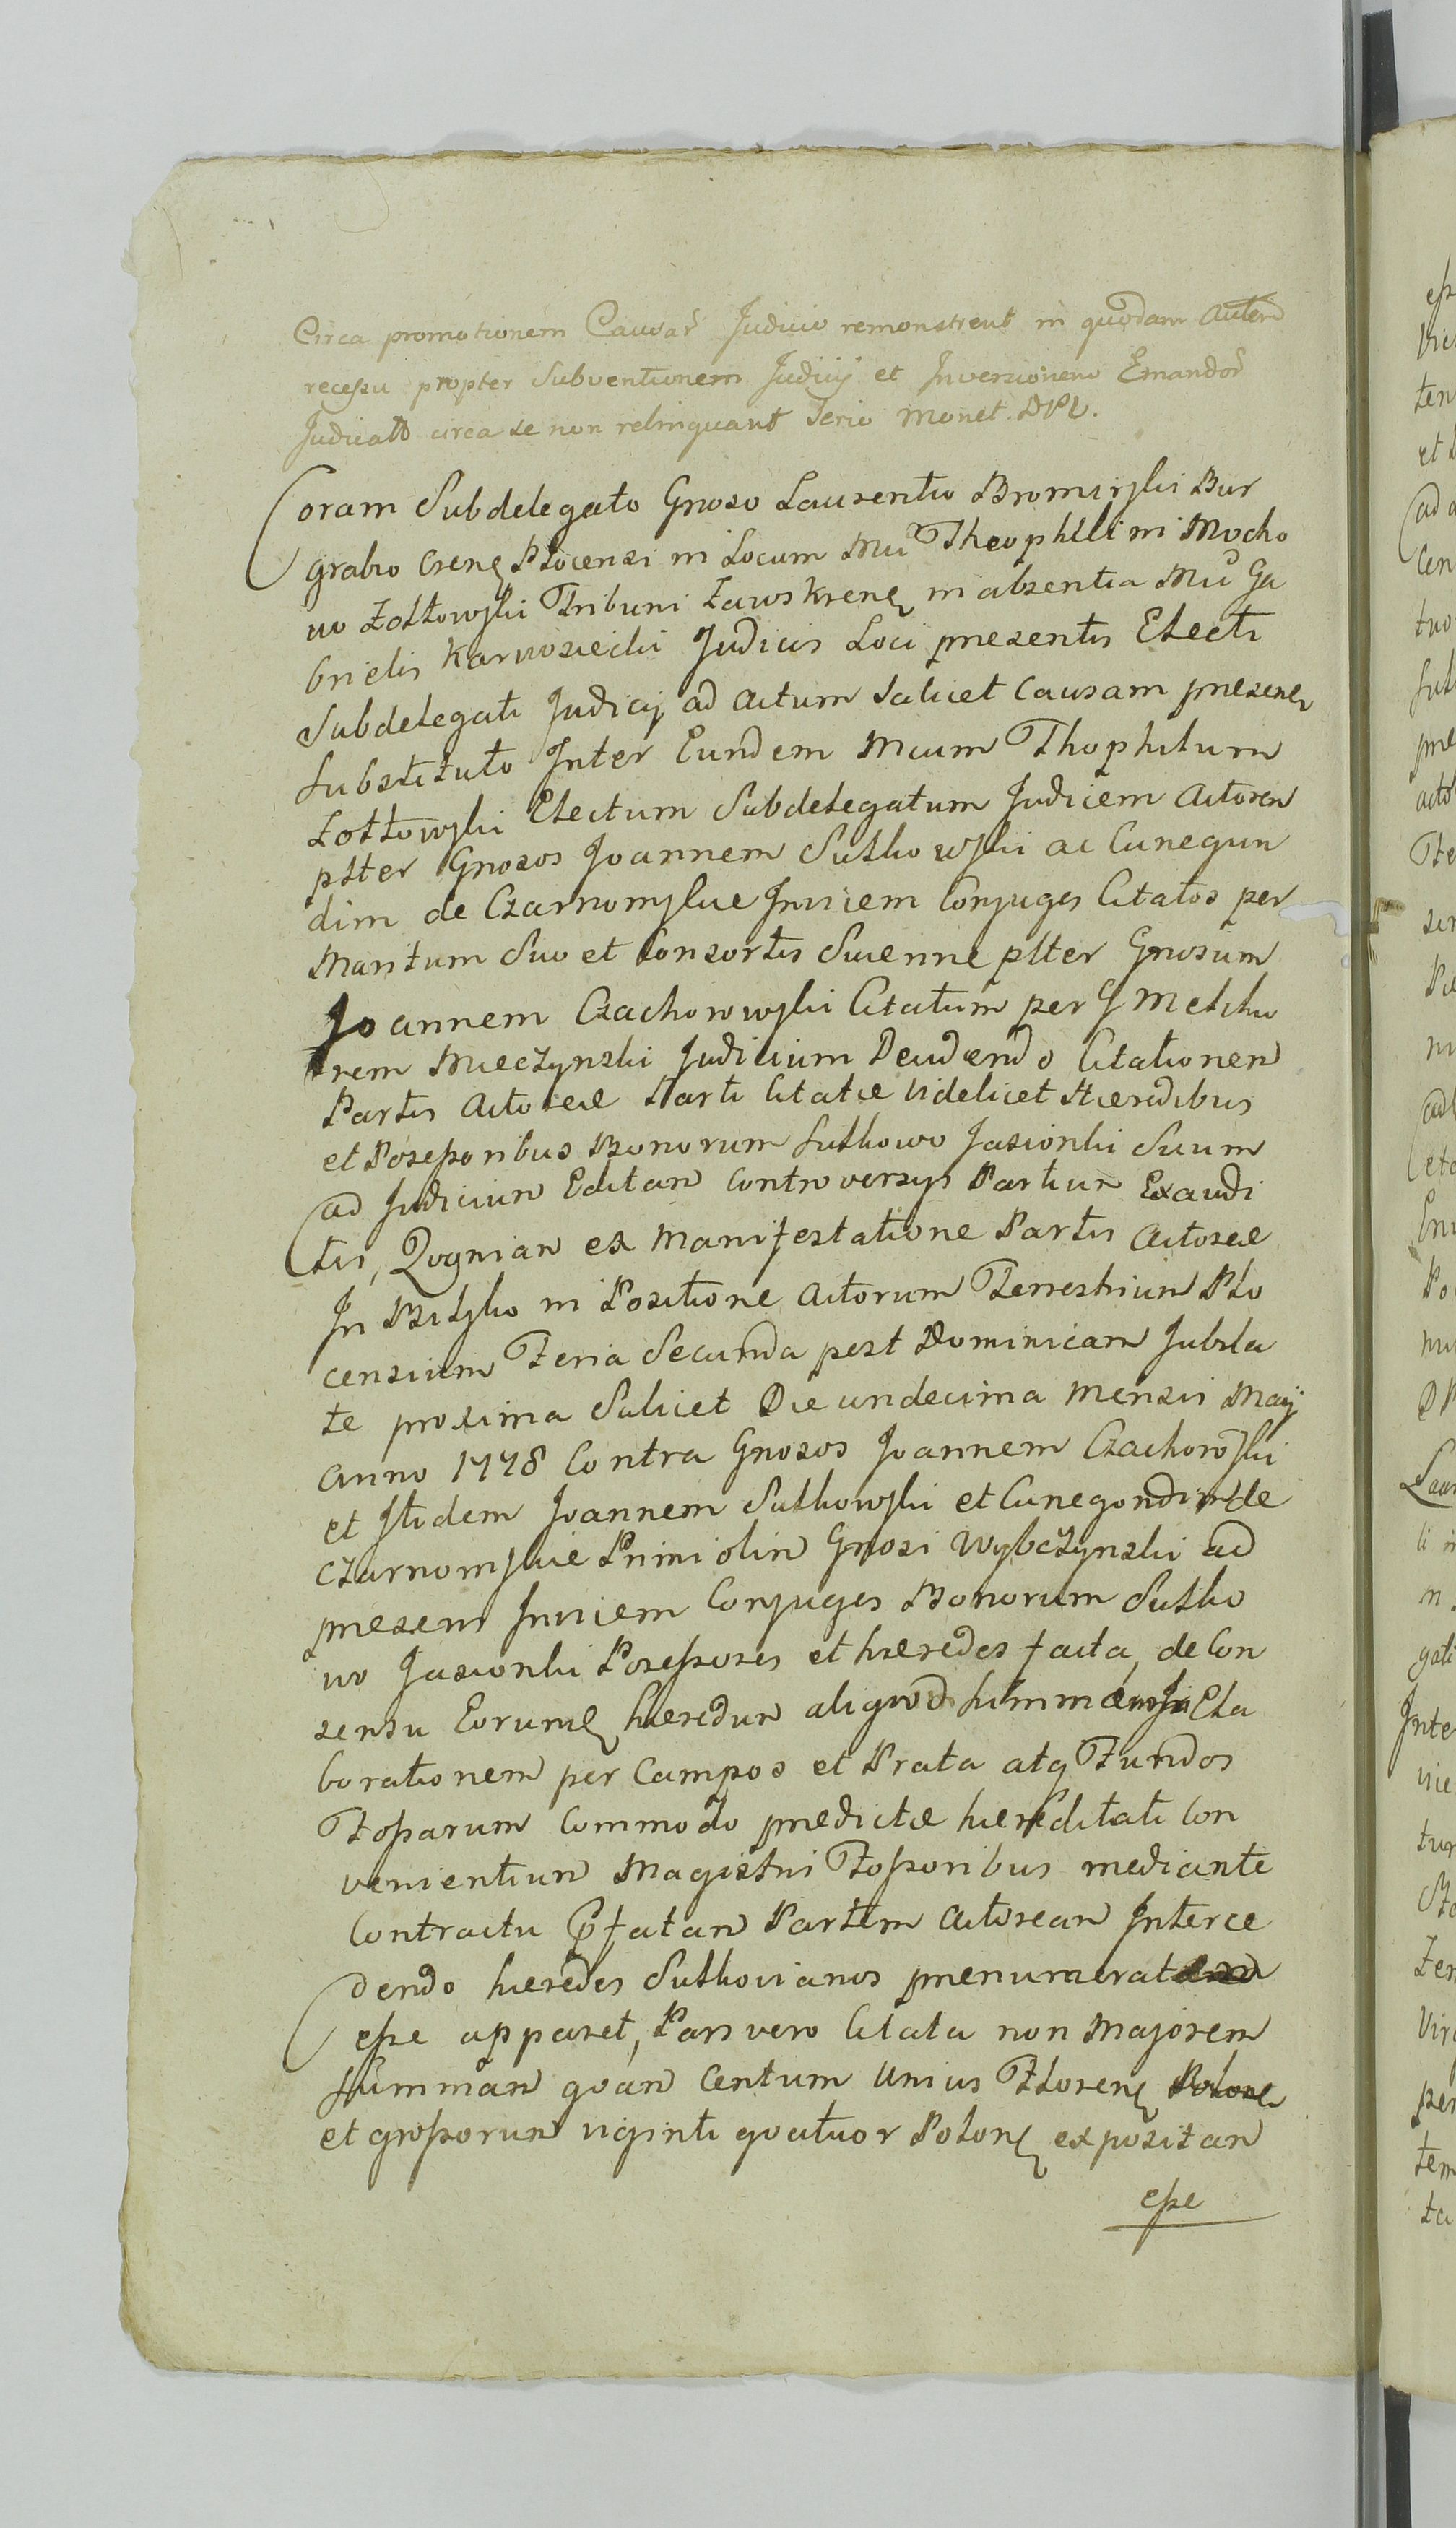 Circa promotionem Causar Judicio remonstrent in quodam Autem
recessu propter Subventionem Judicij et Inversionem Emandor
Judicato circa se non relinquant serio Monet. DPL.
Coram Subdelegato Gnoso Laurentio Bromirski Bur
grabio Cseng Plocensi in Locum Mci Theophili in Mocho
wo Zołtowski Tribuni Zawskrene in absentia Mci Ga
brielis Karwosiecki Judicis Loci presentis Electi
Subdelegati Judicij ad actum Scilicet Causam presene
Substituto Inter Eundem Mcum Thophilum
Zołtowski Electum Subdelegatum Judicem Actorem
plter Gnosos Joannem Sutkowski ac Cunegun
dim de Czarnomskie Invicem Conjuges Citatos per
Maritum Suo et Consortis Suenne plter Gnosum
Joannem Czachorowski Citatum per G Melchio
rem Mieczynski Judicium Decidendo Citationem
Partis Actoreæ Parti Citatæ videlicet Hæredibus
et Possessoribus Bonorum Sutkowo Jasionki Suum
ad Judicium Editam Controversys Partium Exaudi
tis, Qvoniam ex Manifestatione Partis Actoreæ
In Bilsko in Positione Actorum Terrestrium Plo
censium Feria Secunda post Dominicam Jubila
te proxima Scilicet Die undecima Mensis Maij
Anno 1778 Contra Gnosos Joannem Czachorowski
et Itidem Joannem Sutkowski et Cunegondim de
Czarnomskie Primi olim Gnosi Wybczynski ad
presens Invicem Conjuges Bonorum Sutko
wo Jasionki Possessores et hæredes facta, de Con
sensu Eorum hæredum aliqvod Summam In Ela
borationem per Campos et Prata atq Fundos
Fossarum Commodo predictæ hæreditati Con
venientium Magistri Fossoribus mediante
Contractu Pfatam Partem Actoream Interce
dendo hæredes Sutkovianos prenumerat
esse apparet, Pars vero Citata non Majorem
Summam qvam Centum Unius Floren
et grossorum viginti qvatuor Polon expositam
esse